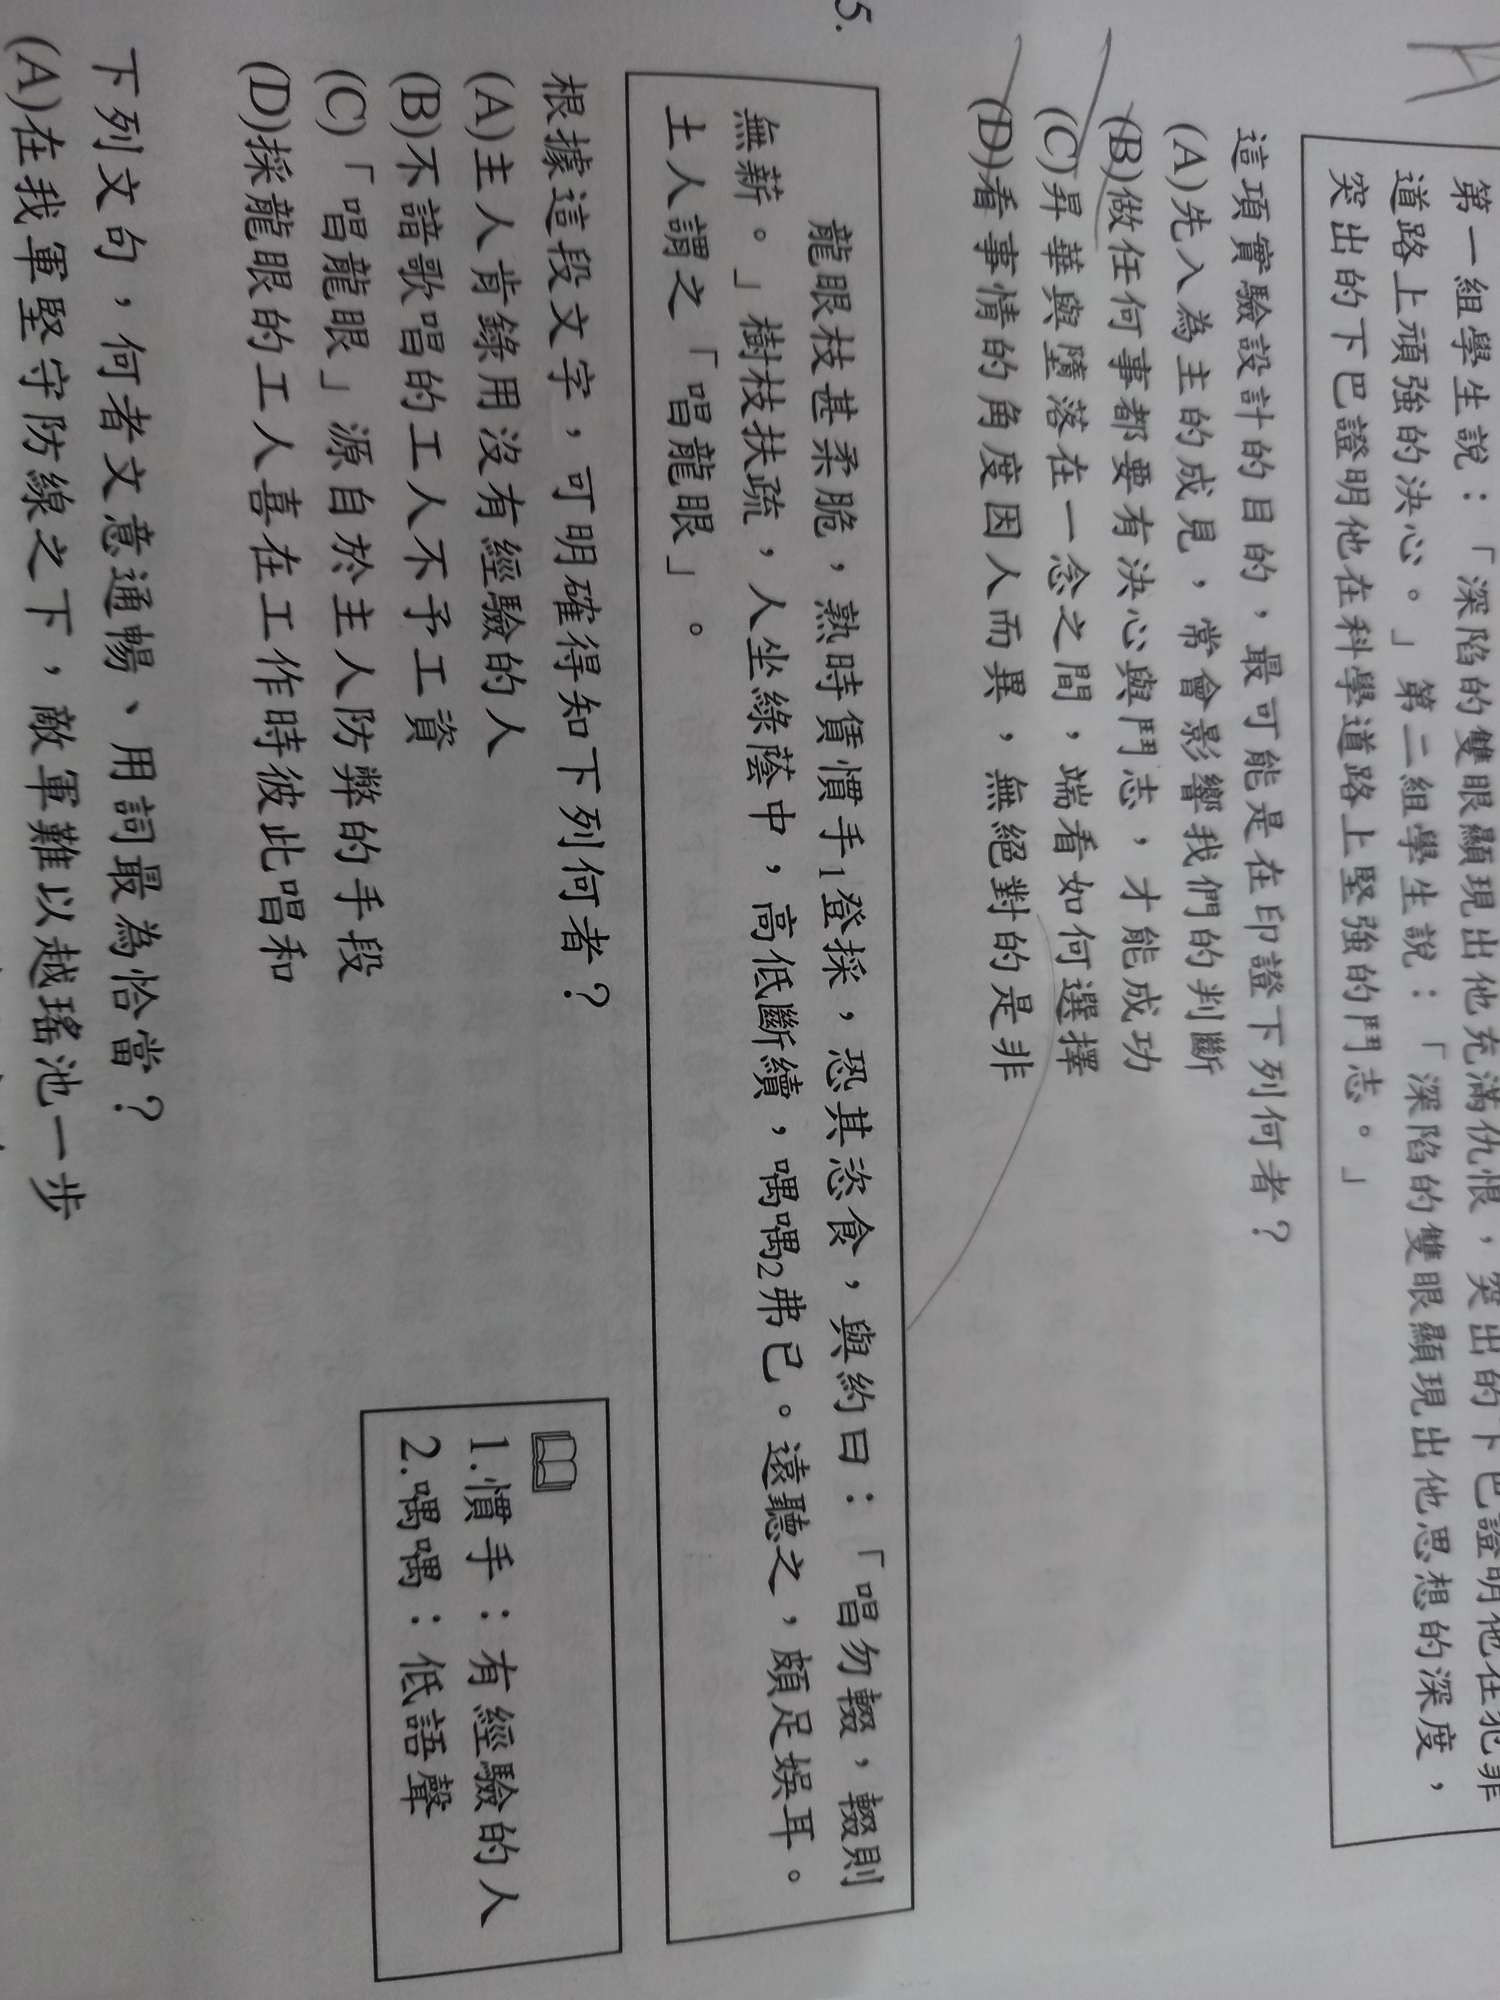 第一組學生說：「深陷的雙眼顯現出他充滿仇恨，突出的下巴證明他在犯罪
道路上頑強的決心。」第二組學生說：「深陷的雙眼顯現出他思想的深度，
突出的下巴證明他在科學道路上堅強的鬥志。」
這項實驗設計的目的，最可能是在印證下列何者？
(A)先入為主的成見，常會影響我們的判斷
(B)做任何事都要有決心與鬥志，才能成功
(C)昇華與墮落在一念之間，端看如何選擇
(D)看事情的角度因人而異，無絕對的是非
5.
龍眼枝甚柔脆，熟時賃慣手1登採，恐其恣食，與約曰：「唱勿輟，輟則
無薪。」樹枝扶疏，人坐綠蔭中，高低斷續，喁喁2弗已。遠聽之，頗足娛耳。
土人謂之「唱龍眼」。
根據這段文字，可明確得知下列何者？
(A)主人肯錄用沒有經驗的人
(B)不諳歌唱的工人不予工資
(C)「唱龍眼」源自於主人防弊的手段
(D)採龍眼的工人喜在工作時彼此唱和
1.慣手：有經驗的人
2.喁喁：低語聲
下列文句，何者文意通暢、用詞最為恰當？
(A)在我軍堅守防線之下，敵軍難以越瑤池一步